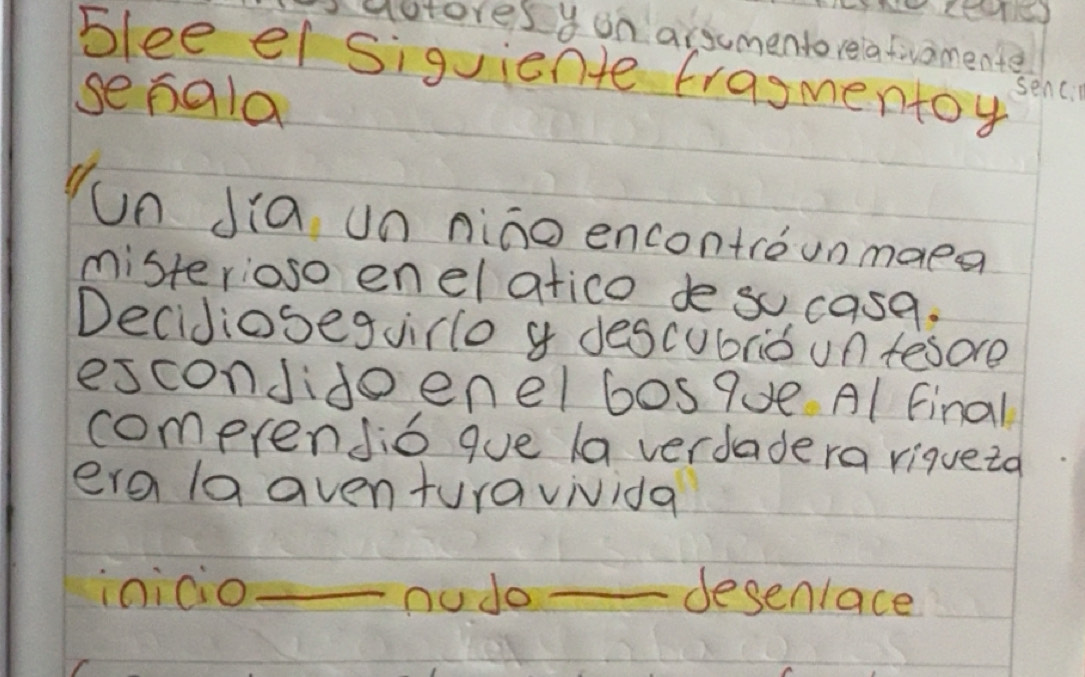 autores y un argumento relativamente
5 lee el siguiente fragmento y
señala
"Un día, un niño encontró un mapa
misterioso en el atico de su casa.
Decidio seguirlo y descubrió un tesoro
escondido en el bosque. Al final,
comprendió que la verdadera riqueza
era la aventura vivida"
inicio — nudo — desenlace